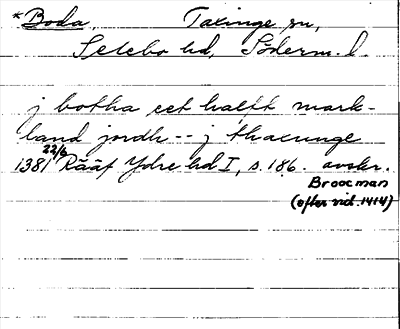 *Boda, Taxinge sn,
Selebo hd, Söderm. l
j botha eet halfft mark-
land jordh -- j thaxunge
1381 22/6 Rääf Ydre hd I, s. 186. avskr.
Broocman
(efter vid. 1414)